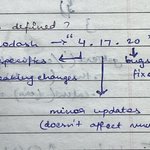 defined ?
lodash → " 4 . 17 . 20 "
specifies
breaking changes
bugs
fixe
minor updates
(doesn't affect